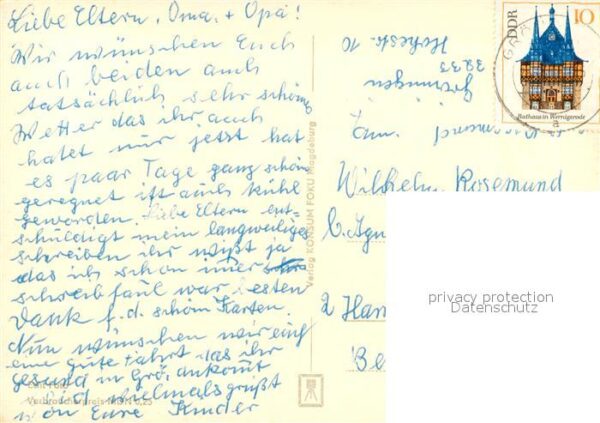 Liebe Eltern, Oma, + Opa!
Wir wünschen Euch
auch beiden auch
tatsächlich sehr schönes
Wetter das ihr auch
habt nur jetzt hat
es paar Tage ganz schön
geregnet ist auch kühl
geworden. Liebe Eltern ent-
schuldigt mein langweiliges
schreiben ihr wißt ja
das ich schon immer
schreibfaul war besten
Dank f. d. schöne Karten.
Nun wünschen wir euch
eine gute Fahrt das ihr
gesund in Grö. ankommt
Seid vielmals grüßt
von Eure Kinder
Verbraucherpreis MDN 0,25
Verlag KONSUM FOKU Magdeburg
DDR
10
Rathaus in Wernigerode
Hohestr. 10
3233
Gröningen
Fam.
Wilhelm Rosemund
2 Ham
Be
privacy protection
Datenschutz